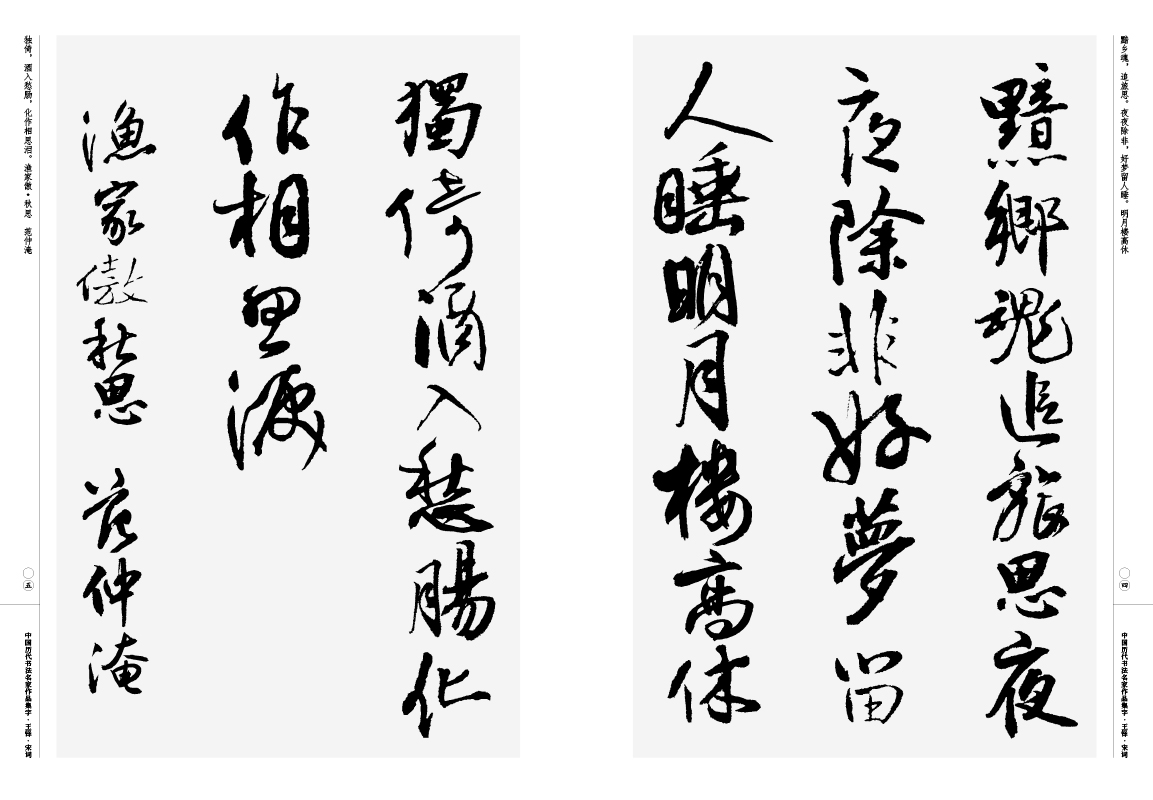 黯乡魂，追旅思。夜夜除非，好梦留人睡。明月楼高休
〇四
中国历代书法名家作品集字·王铎·宋词
黯鄉魂追旅思夜
夜除非好夢留
人睡明月樓高休
獨倚酒入愁腸化
作相思淚
漁家傲秋思 范仲淹
独倚，酒入愁肠，化作相思泪。渔家傲·秋思 范仲淹
〇五
中国历代书法名家作品集字·王铎·宋词